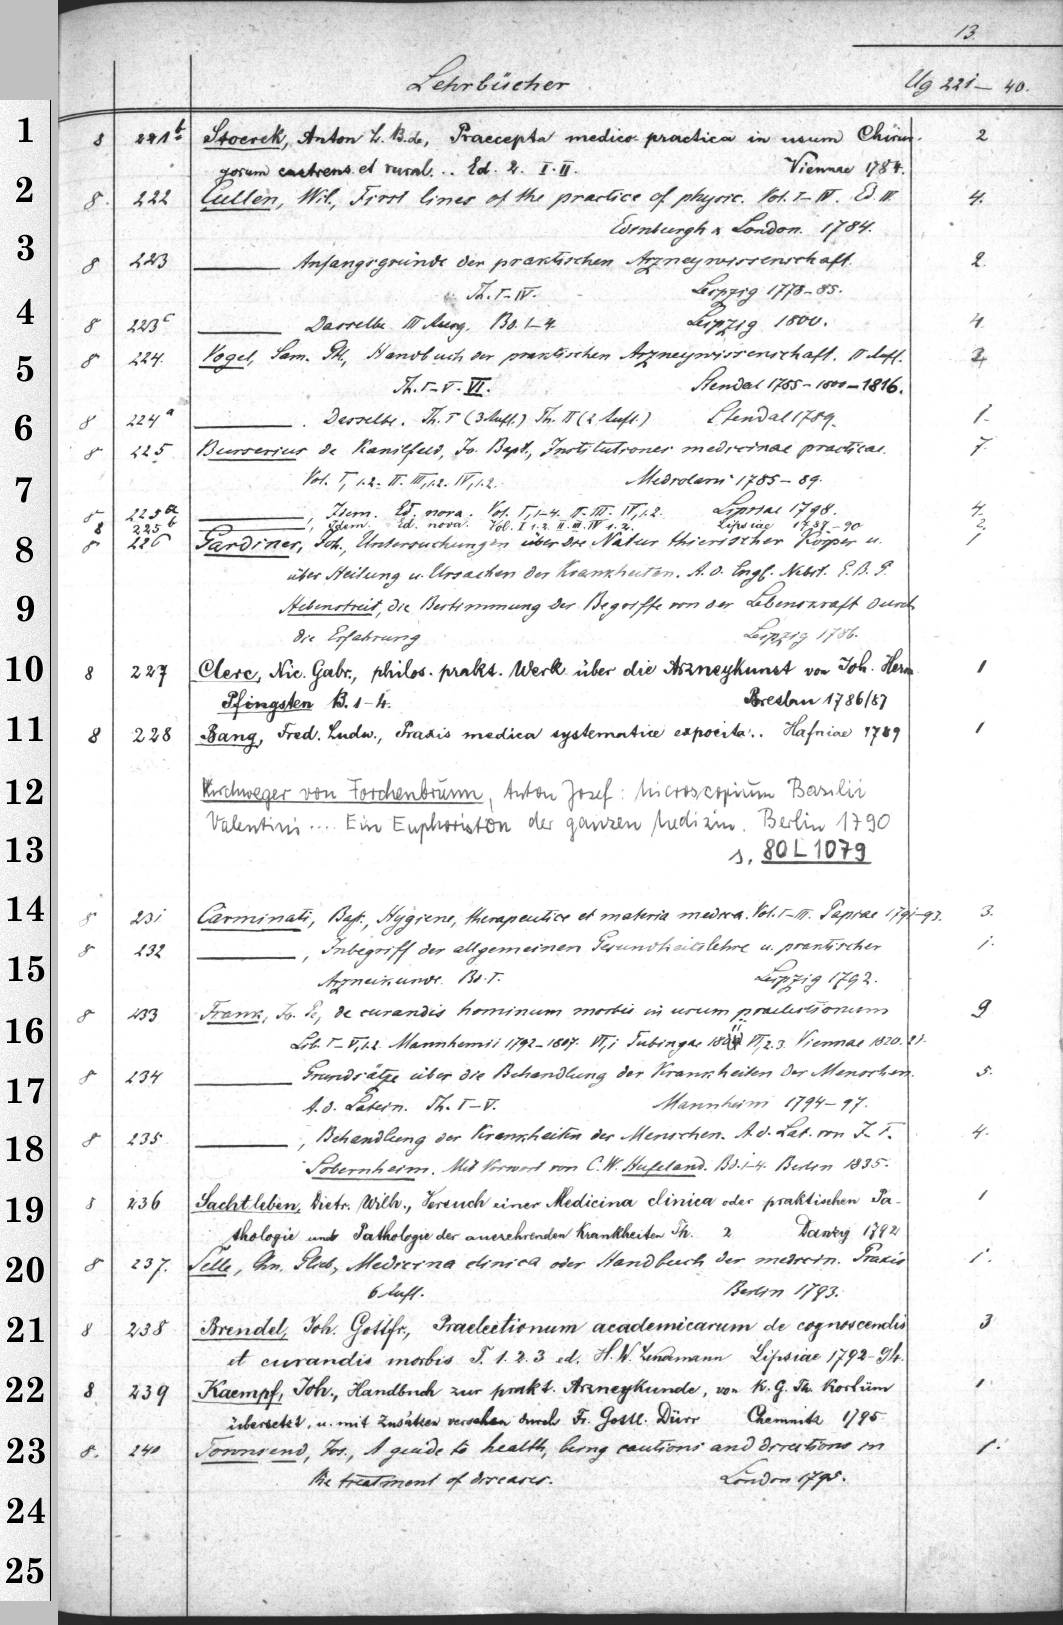 13.
Lehrbücher Ug 221- 40.
1 8 221b Stoerck, Anton L. B. de, Praecepta medico practica in usum Chirur- 2
gorum castrens. et rural... Ed. 2. I.II. Viennae 1784.
2 8. 222 Cullen, Wil., First lines of the practice of physic. Vol. I-IV. Ed. III 4.
Edinburgh & London. 1784.
3 8 223 ——— Anfangsgründe der praktischen Arzneywissenschaft. 2.
Th. I-IV. Leipzig 1778-85.
4 8 223c ——— Dasselbe. III Ausg. Bd. 1-4. Leipzig 1800. 4.
5 8 224. Vogel, Sam. Gl., Handbuch der praktischen Arzneywissenschaft. II Aufl.
Th. I-V. VI. Stendal 1785-1800-1816.
6 8 224a ———. Dasselbe. Th. I (3 Aufl.) Th. II (2 Aufl.) Stendal 1789. 1.
8 225 Burserius de Kanilfeld, Jo. Bapt., Institutiones medicinae practicae. 7.
7 Vol. I, 1.2. II. III, 1.2. IV, 1.2. Mediolani 1785-89.
8 225a ———, Idem. Ed. nova. Vol. I, 1-4. II. III. IV, 1.2. Lipsiae 1798. 4.
8 225b ———, Idem. Ed. nova. Vol. I 1.2. II. III. IV 1.2. Lipsiae 1787-90 2.
8 8 226 Gardiner, Joh., Untersuchungen über die Natur thierischer Körper u. 1
über Heilung u. Ursachen der Krankheiten. A. d. Engl. Nebst. E. B. G.
9 Hebenstreit, die Bestimmung der Begriffe von der Lebenskraft durch
die Erfahrung Leipzig 1786.
10 8 227 Clerc, Nic. Gabr., philos. prakt. Werk über die Arzneykunst von Joh. Herm 1
Pfingsten B. 1-4. Breslau 1786/87
11 8 228 Bang, Fred. Ludw., Praxis medica systematice exposita.. Hafniae 1789 1
12 Kirchweger von Forchenbrunn, Anton Josef: Microscopium Basilii
Valentini .... Ein Euphoriston der ganzen Medizin. Berlin 1790
13 s. 80 L 1079
14 8 231 Carminati, Bass., Hygiene, therapeutice et materia medica. Vol. I-III. Papiae 1791-93. 3.
8 232 ———, Inbegriff der allgemeinen Gesundheitslehre u. praktischer 1.
15 Arzneikunde. Bd. I. Leipzig 1792.
8 233 Frank, Jo. Pe., de curandis hominum morbis in usum praelectionum 9
16 Lib. I-V, 1.2. Mannhemii 1792-1807. VI, 1 Tubingae VI, 2.3. Viennae 1820.21.
17 8 234 ——— Grundsätze über die Behandlung der Krankheiten der Menschen. 5.
A. d. Latein. Th. I-V. Mannheim 1794-97.
18 8 235 ———, Behandlung der Krankheiten der Menschen. A. d. Lat. von J. F. 4.
Sobernheim. Mit Vorwort von C. W. Hufeland. Bd. 1-4. Berlin 1835.
19 8 236 Sachtleben, Dietr. Wilh., Versuch einer Medicina clinica oder praktischen Pa- 1
thologie und Pathologie der auszehrenden Krankheiten Th. 2 Danzig 1792
20 8 237. Selle, Chn. Glieb, Medicina clinica oder Handbuch der medicin. Praxis 1.
6 Aufl. Berlin 1793.
21 8 238 Brendel, Joh. Gottfr., Praelectionum academicarum de cognoscendis 3
et curandis morbis T. 1. 2. 3 ed. H. W. Lindemann Lipsiae 1792-94.
22 8 239 Kaempf, Joh., Handbuch zur prakt. Arzneykunde, von K. G. Th. Kortüm 1
übersetzt, u. mit Zusätzen versehen durch Fr. Gottl. Dürr Chemnitz 1795
23 8. 240 Townsend, Jos., A guide to health, being cautions and directions in 1.
the treatment of diseases. London 1795.
24
25